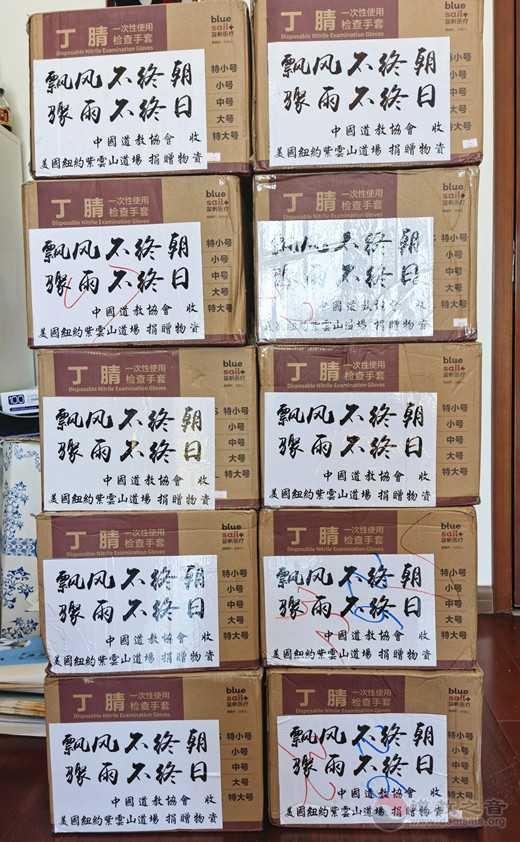 丁腈 一次性使用 检查手套
Disposable Nitrile Examination Gloves
blue
sail+
蓝帆医疗
飘风不终朝
骤雨不终日
中國道教協會 收
美國紐約紫雲山道場 捐贈物資
特小号
小号
中号
大号
特大号
丁腈 一次性使用 检查手套
Disposable Nitrile Examination Gloves
blue
sail+
蓝帆医疗
飘风不终朝
骤雨不终日
中國道教協會 收
美國紐約紫雲山道場 捐贈物資
特小号
小号
中号
大号
特大号
丁腈 一次性使用 检查手套
Disposable Nitrile Examination Gloves
blue
sail+
蓝帆医疗
飘风不终朝
骤雨不终日
中國道教協會 收
美國紐約紫雲山道場 捐贈物資
特小号
小号
中号
大号
特大号
丁腈 一次性使用 检查手套
Disposable Nitrile Examination Gloves
blue
sail+
蓝帆医疗
不终朝
雨不终日
中國道教協會 收
美國紐約紫雲山道場 捐贈物資
特小号
小号
中号
大号
特大号
丁腈 一次性使用 检查手套
Disposable Nitrile Examination Gloves
blue
sail+
蓝帆医疗
飘风不终朝
骤雨不终日
中國道教協會 收
美國紐約紫雲山道場 捐贈物資
特小号
小号
中号
大号
特大号
丁腈 一次性使用 检查手套
Disposable Nitrile Examination Gloves
blue
sail+
蓝帆医疗
飘风不终朝
骤雨不终日
中國道教協會 收
美國紐約紫雲山道場 捐贈物資
特小号
小号
中号
大号
特大号
丁腈 一次性使用 检查手套
Disposable Nitrile Examination Gloves
blue
sail+
蓝帆医疗
飘风不终朝
骤雨不终日
中國道教協會 收
美國紐約紫雲山道場 捐贈物資
特小号
小号
中号
大号
特大号
丁腈 一次性使用 检查手套
Disposable Nitrile Examination Gloves
blue
sail+
蓝帆医疗
飘风不终朝
骤雨不终日
中國道教協會 收
美國紐約紫雲山道場 捐贈物資
特小号
小号
中号
大号
特大号
丁腈 一次性使用 检查手套
Disposable Nitrile Examination Gloves
blue
sail+
蓝帆医疗
飘风不终朝
骤雨不终日
中國道教協會 收
美國紐約紫雲山道場 捐贈物資
特小号
小号
中号
大号
特大号
丁腈 一次性使用 检查手套
Disposable Nitrile Examination Gloves
blue
sail+
蓝帆医疗
飘风不终朝
骤雨不终日
中國道教協會 收
美國紐約紫雲山道場 捐贈物資
特小号
小号
中号
大号
特大号
道教之音
www.daoisms.org